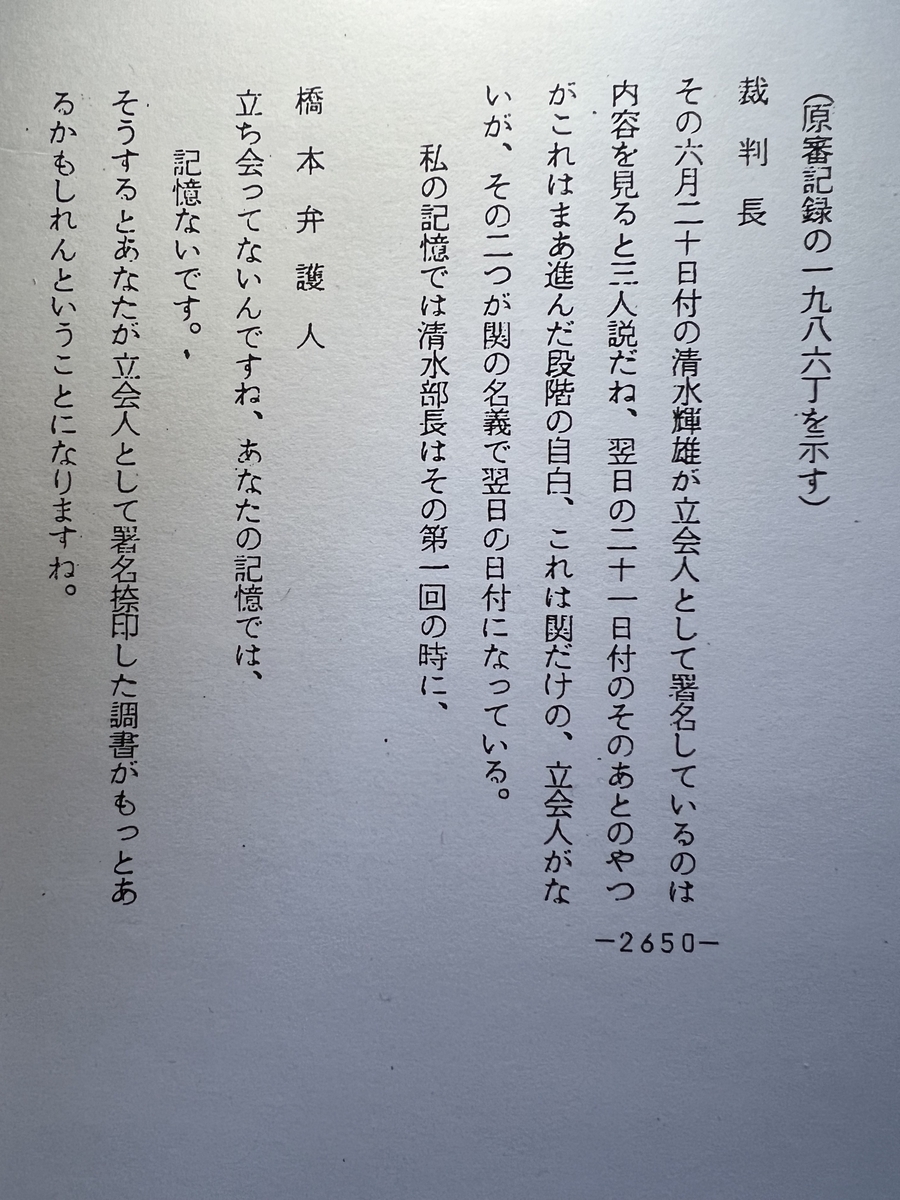 (原審記録の一九八六丁を示す)
裁判長
その六月二十日付の清水輝雄が立会人として署名しているのは
内容を見ると三人説だね、翌日の二十一日付のそのあとのやつ
がこれはまあ進んだ段階の自白、これは関だけの、立会人がな
いが、その二つが関の名義で翌日の日付になっている。
私の記憶では清水部長はその第一回の時に、
橋本弁護人
立ち会ってないんですね、あなたの記憶では、
記憶ないです。
そうするとあなたが立会人として署名捺印した調書がもっとあ
るかもしれんということになりますね。
—2650—